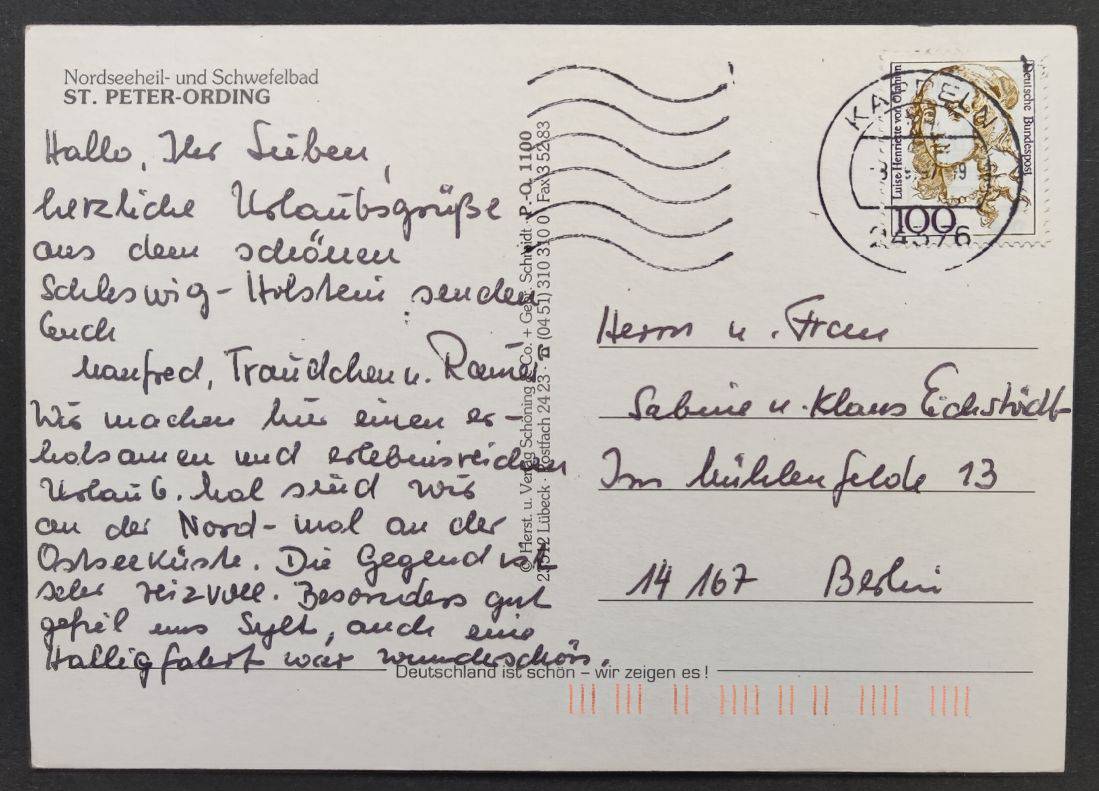 Nordseeheil- und Schwefelbad
ST. PETER-ORDING
Hallo, Ihr Lieben,
herzliche Urlaubsgrüße
aus dem schönen
Schleswig-Holstein senden
Euch
Manfred, Traudchen u. Rainer
Wir machen hier einen er-
holsamen und erlebnisreichen
Urlaub. Mal sind wir
an der Nord- mal an der
Ostseeküste. Die Gegend ist
sehr reizvoll. Besonders gut
gefiel uns Sylt, auch eine
Halligfahrt war wunderschön.
© Herst. u. Verlag Schöning & Co. + Gebr. Schmidt · P.-O. 1100
23512 Lübeck · Postfach 24 23 · ☎ (04 51) 310 310 0 Fax 3 52 83
Luise Henriette von Oranien
Deutsche Bundespost
100
KAPPELN
24376
Herrn u. Frau
Sabine u. Klaus Eichstädt
Im Mühlenfelde 13
14 167 Berlin
Deutschland ist schön – wir zeigen es !